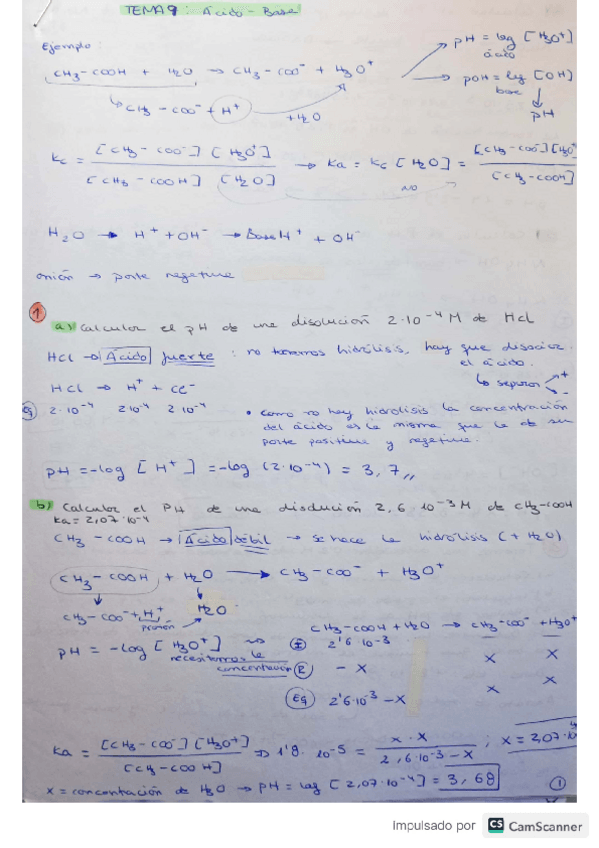 TEMA 9: Ácido - Base
Ejemplo:
pH = log [H₃O⁺]
ácido
CH₃-COOH + H₂O → CH₃-COO⁻ + H₃O⁺
pOH = log [OH]
base
↳ CH₃-COO⁻ + H⁺
+H₂O
pH
Kc = [CH₃-COO⁻] [H₃O⁺] / [CH₃-COOH] [H₂O] → Ka = Kc [H₂O] = [CH₃-COO⁻][H₃O⁺ / [CH₃-COOH]
NO
H₂O → H⁺ + OH⁻ → Base H⁺ + OH⁻
anión → parte negativa
1
a) Calcular el pH de una disolución 2·10⁻⁴ M de HCl
HCl → Ácido fuerte : no tenemos hidrólisis, hay que disociar el ácido.
↳ separar + -
HCl → H⁺ + Cl⁻
Eq 2·10⁻⁴ 2·10⁻⁴ 2·10⁻⁴
• como no hay hidrólisis la concentración
del ácido es la misma que la de su
parte positiva y negativa.
pH = -log [H⁺] = -log (2·10⁻⁴) = 3,7,,
b) Calcular el pH de una disolución 2,6·10⁻³ M de CH₃-COOH
Ka = 2,07·10⁻⁴
CH₃-COOH → Ácido débil → se hace la hidrólisis (+ H₂O)
CH₃-COOH + H₂O → CH₃-COO⁻ + H₃O⁺
CH₃-COO⁻ + H⁺
protón
H₂O
CH₃-COOH + H₂O → CH₃-COO⁻ + H₃O⁺
pH = -log [H₃O⁺] → necesitamos la concentración
I 2'6·10⁻³ — —
R - X X X
Eq 2'6·10⁻³ - X X X
Ka = [CH₃-COO⁻] [H₃O⁺] / [CH₃-COOH] ⇒ 1'8·10⁻⁵ = X·X / 2,6·10⁻³ - X ; X = 2,07·10
X = concentración de H₃O → pH = log [2,07·10⁻⁴] = 3,68
1
Impulsado por CS CamScanner